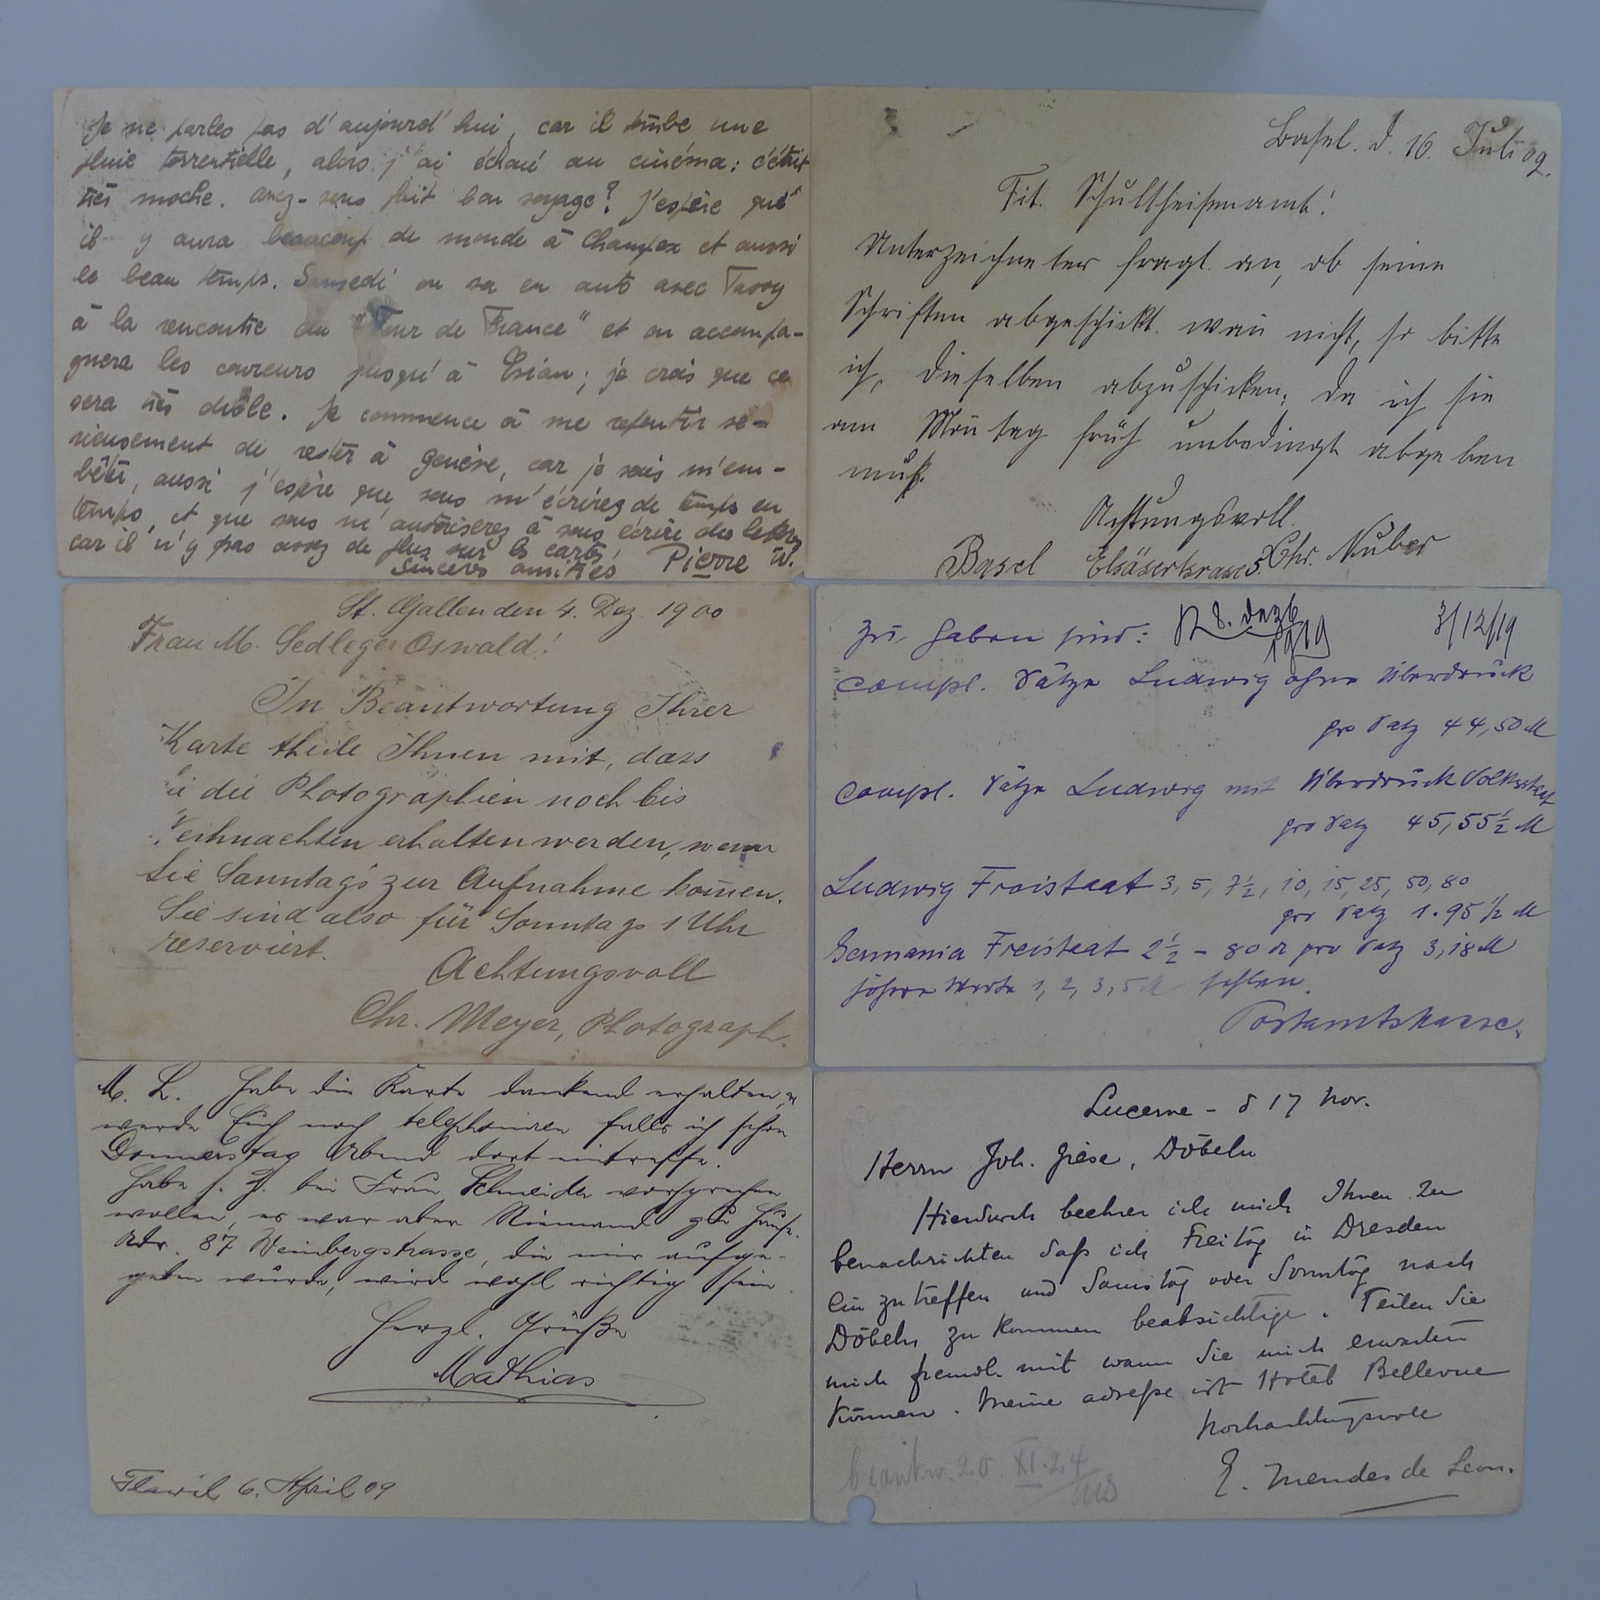 Je ne parles pas d'aujourd'hui, car il tombe une
pluie torrentielle, alors j'ai échoué au cinéma: c'était
très moche. avez-vous fait bon voyage? J'espère qu'
il y aura beaucoup de monde à Champex et aussi
le beau temps. Samedi on va en auto avec
à la rencontre du "Tour de France" et on accompa-
gnera les coureurs jusqu'à Evian; je crois que ce
sera très drôle. Je commence à me repentir sé-
rieusement de rester à Genève, car je vais m'em-
bêter, aussi j'espère que vous m'écrirez de temps en
temps, et que vous m'autoriserez à vous écrire des lettres
car il n'y pas assez de place sur les cartes!
Sincères amitiés Pierre W.
Basel. d. 16. Juli 09.
Tit. Schultheisenamt!
Unterzeichneter fragt an, ob seine
Schriften abgeschickt. wen̄ nicht, so bitte
ich, dieselben abzuschicken, da ich sie
am Montag früh unbedingt abgeben
muß.
Achtungsvoll
Basel Elsäserstrasse Chr. Nuber
St. Gallen den 4. Dez. 1900
Frau M. Sedleger Oswald!
In Beantwortung Ihrer
Karte theile Ihnen mit, dass
die Photographien noch bis
Weihnachten erhalten werden, wenn
Sie Sonntags zur Aufnahme kom̄en.
Sie sind also für Sonntags 1 Uhr
reserviert.
Achtungsvoll
Chr. Meyer, Photograph.
Zu haben sind: 8. Dezb 1919 3/12/19
compl. Sätze Ludwig ohne Überdruck
pro Satz 44,50 M
compl. Sätze Ludwig mit Überdruck Volksstaat
pro Satz 45,55½ M
Ludwig Freistaat 3, 5, 7½, 10, 15, 25, 50, 80
pro Satz 1.95½ M
Germania Freistaat 2½ - 80 ₰ pro Satz 3,18 M
höhere Werte 1, 2, 3, 5 M fehlen.
Postamtskasse.
M. L. Habe die Karte dankend erhalten, u
werde Euch noch telephonieren falls ich schon
Donnerstag Abend dort eintreffe.
Habe s. Z. bei Frau Schneider vorsprechen
wollen, es war aber Niemand zu Hause.
Adr. 87 Weinbergstrasse, die mir aufge-
geben wurde, wird wohl richtig sein.
Herzl. Grüße
Mathias
Flawil 6. April 09
Lucerne - d 17 Nov.
Herrn Joh. Giese, Döbeln
Hierdurch beehre ich mich Ihnen zu
benachrichten daß ich Freitag in Dresden
ein zu treffen und Samstag oder Sonntag nach
Döbeln zu kommen beabsichtige. Teilen Sie
mich freundl. mit wann Sie mich erwarten
können. Meine adreße ist Hotel Bellevue
Hochachtungsvoll
E. Mendes de Leon.
beantw. 20 XI. 24